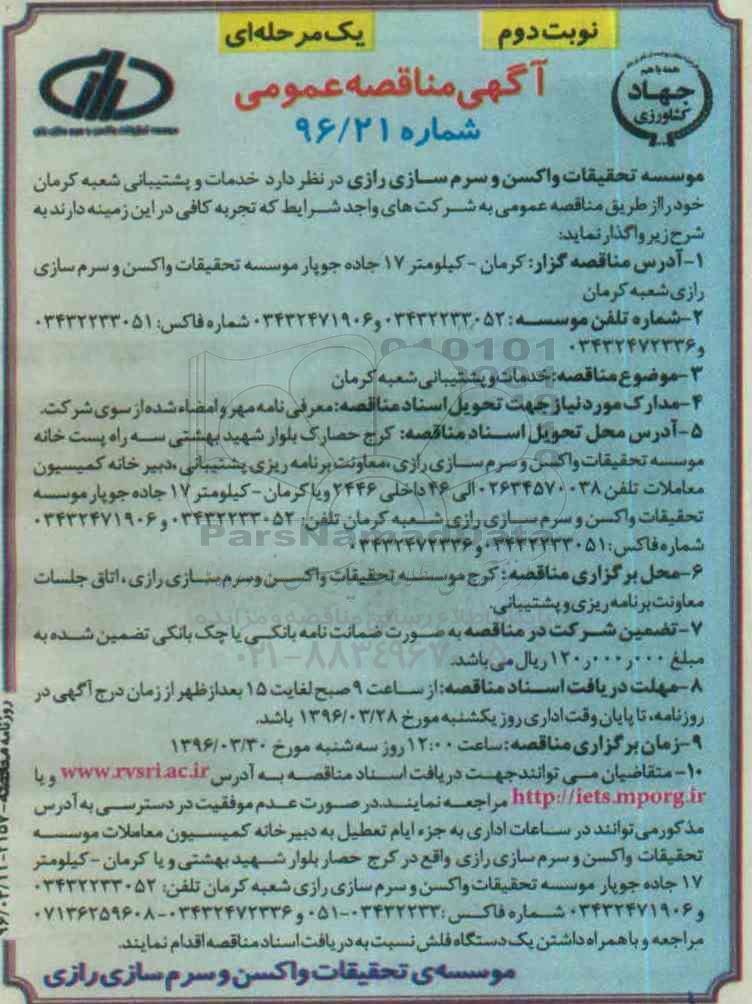 نوبت دوم
یک مرحله‌ای
همه با هم
جهاد
کشاورزی
آگهی مناقصه عمومی
شماره ۹۶/۲۱
موسسه تحقیقات واکسن و سرم سازی رازی در نظر دارد خدمات و پشتیبانی شعبه کرمان
خود را از طریق مناقصه عمومی به شرکت های واجد شرایط که تجربه کافی در این زمینه دارند به
شرح زیر واگذار نماید:
۱-آدرس مناقصه گزار: کرمان - کیلومتر ۱۷ جاده جوپار موسسه تحقیقات واکسن و سرم سازی
رازی شعبه کرمان
۲-شماره تلفن موسسه: ۰۳۴۳۲۲۳۳۰۵۲ و ۰۳۴۳۲۴۷۱۹۰۶ شماره فاکس: ۰۳۴۳۲۲۳۳۰۵۱
و ۰۳۴۳۲۴۷۲۳۳۶
۳-موضوع مناقصه: خدمات و پشتیبانی شعبه کرمان
۴-مدارک مورد نیاز جهت تحویل اسناد مناقصه: معرفی نامه مهر و امضاء شده از سوی شرکت.
۵-آدرس محل تحویل اسناد مناقصه: کرج حصارک بلوار شهید بهشتی سه راه پست خانه
موسسه تحقیقات واکسن و سرم سازی رازی ،معاونت برنامه ریزی پشتیبانی ،دبیر خانه کمیسیون
معاملات تلفن ۰۲۶۳۴۵۷۰۰۳۸ الی ۴۶ داخلی ۲۴۴۶ و یا کرمان - کیلومتر ۱۷ جاده جوپار موسسه
تحقیقات واکسن و سرم سازی رازی شعبه کرمان تلفن: ۰۳۴۳۲۲۳۳۰۵۲ و ۰۳۴۳۲۴۷۱۹۰۶
شماره فاکس: ۰۳۴۳۲۲۳۳۰۵۱ و ۰۳۴۳۲۴۷۲۳۳۶
۶-محل برگزاری مناقصه: کرج موسسه تحقیقات واکسن وسرم سازی رازی، اتاق جلسات
معاونت برنامه ریزی و پشتیبانی.
۷-تضمین شرکت در مناقصه به صورت ضمانت نامه بانکی یا چک بانکی تضمین شده به
مبلغ ۱۲۰٫۰۰۰٫۰۰۰ ریال می باشد.
۸-مهلت دریافت اسناد مناقصه: از ساعت ۹ صبح لغایت ۱۵ بعد از ظهر از زمان درج آگهی در
روزنامه، تا پایان وقت اداری روز یکشنبه مورخ ۱۳۹۶/۰۳/۲۸ باشد.
۹-زمان برگزاری مناقصه: ساعت ۱۲:۰۰ روز سه شنبه مورخ ۱۳۹۶/۰۳/۳۰
۱۰- متقاضیان می توانند جهت دریافت اسناد مناقصه به آدرس www.rvsri.ac.ir و یا
http://iets.mporg.ir مراجعه نمایند. در صورت عدم موفقیت در دسترسی به آدرس
مذکور می توانند در ساعات اداری به جزء ایام تعطیل به دبیر خانه کمیسیون معاملات موسسه
تحقیقات واکسن و سرم سازی رازی واقع در کرج حصار بلوار شهید بهشتی و یا کرمان - کیلومتر
۱۷ جاده جوپار موسسه تحقیقات واکسن و سرم سازی رازی شعبه کرمان تلفن: ۰۳۴۳۲۲۳۳۰۵۲
و ۰۳۴۳۲۴۷۱۹۰۶ شماره فاکس: ۰۳۴۳۲۲۳۳-۰۵۱ و ۰۳۴۳۲۴۷۲۳۳۶-۰۷۱۳۶۲۵۹۶۰۸
مراجعه و با همراه داشتن یک دستگاه فلش نسبت به دریافت اسناد مناقصه اقدام نمایند.
موسسه‌ی تحقیقات واکسن و سرم سازی رازی
ParsNamadData
۰۲۱-۸۸۳۴۹۶۷۰